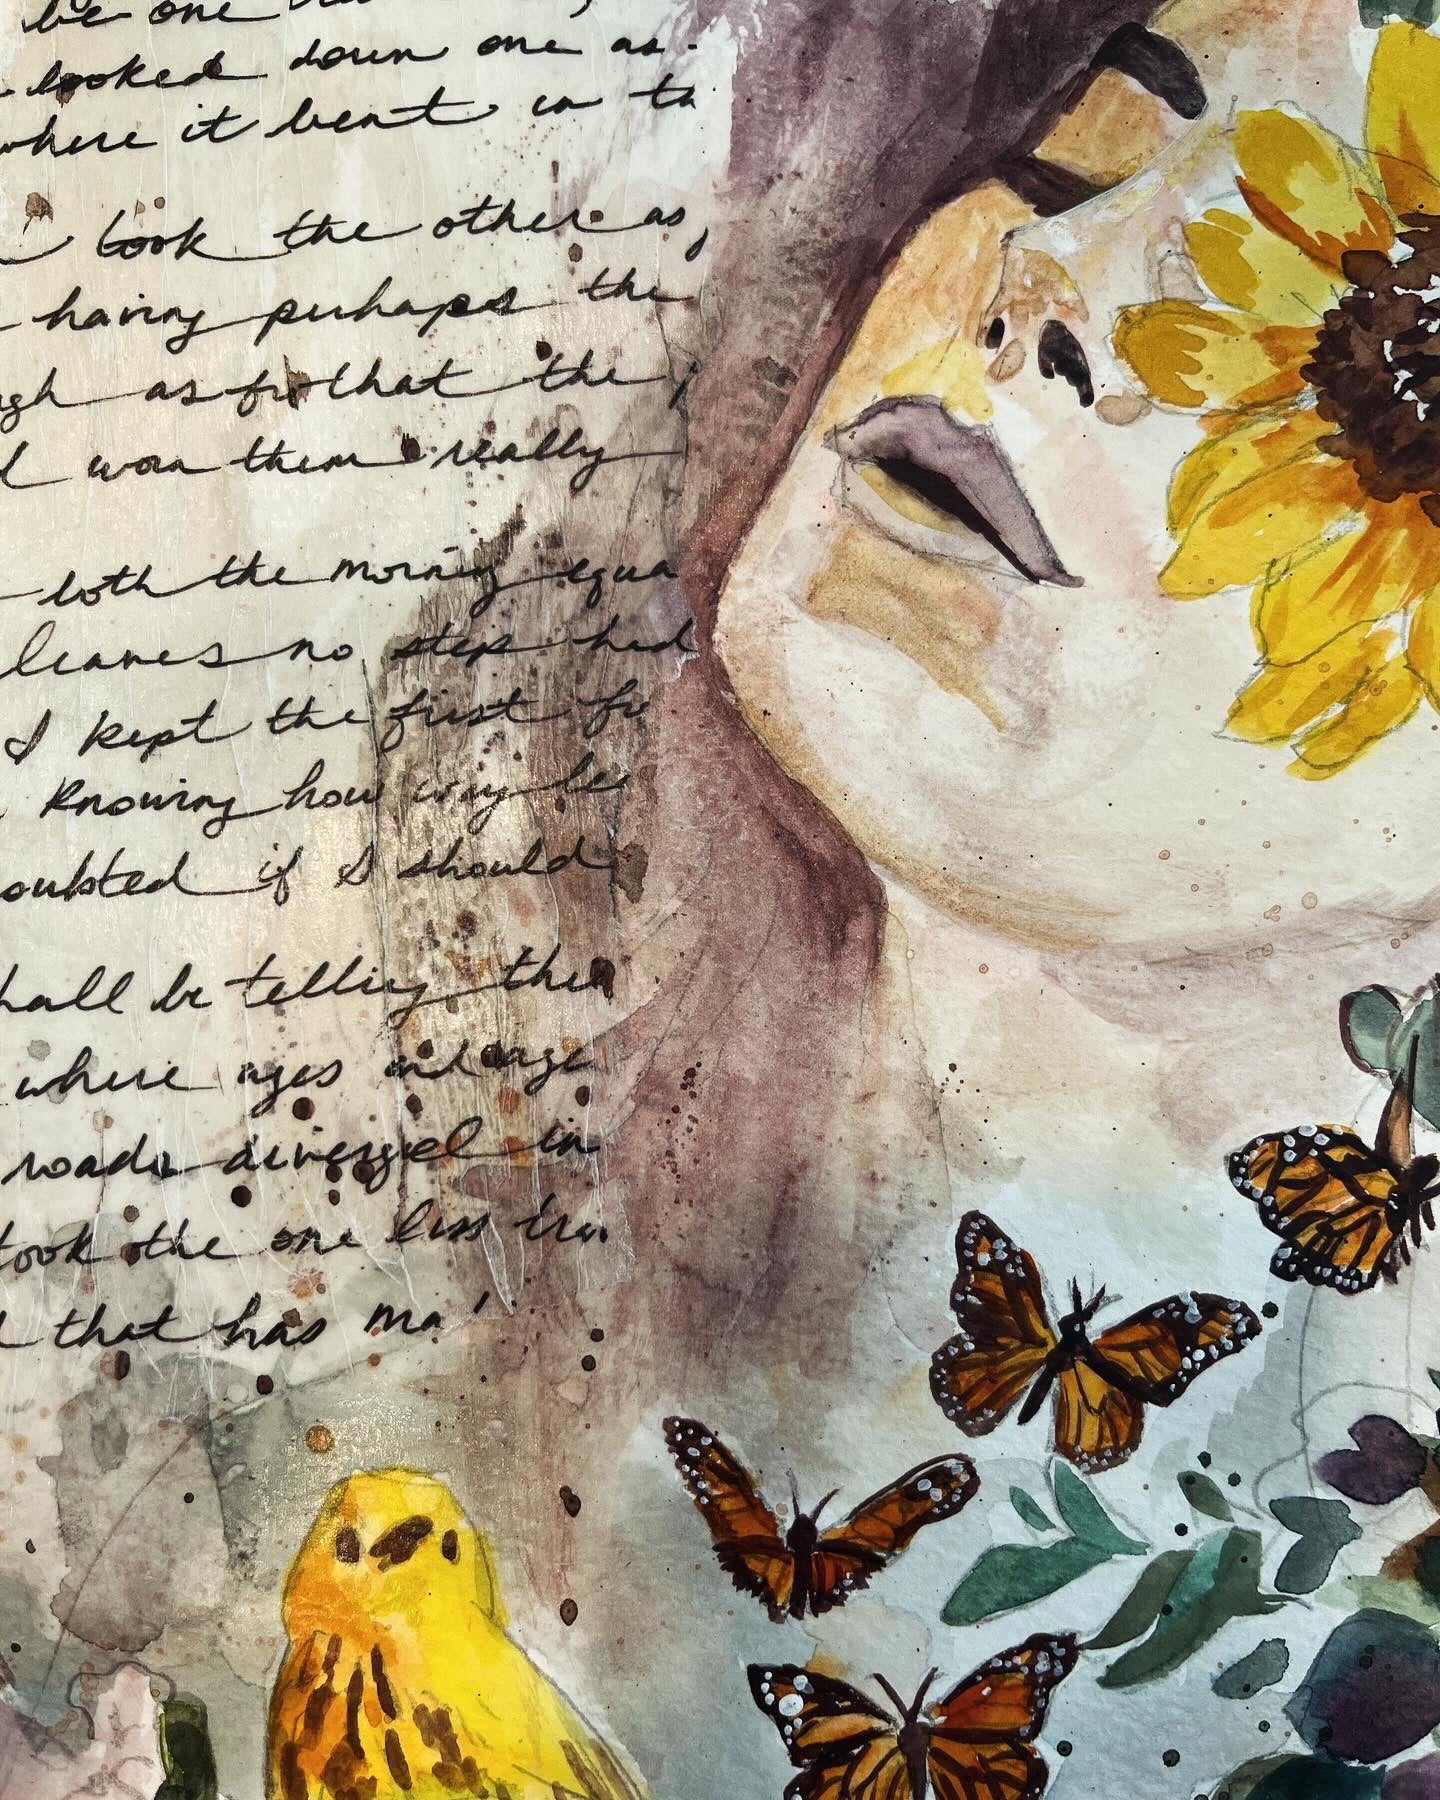 be one
looked down one as
where it bent in th
took the other as
having perhaps the
gh as for that the
d worn them really
both the morning equa
leaves no step had
I kept the first fo
knowing how way le
oubted if I should
hall be telling this
where ages and age
roads diverged in
took the one less tra
d that has ma